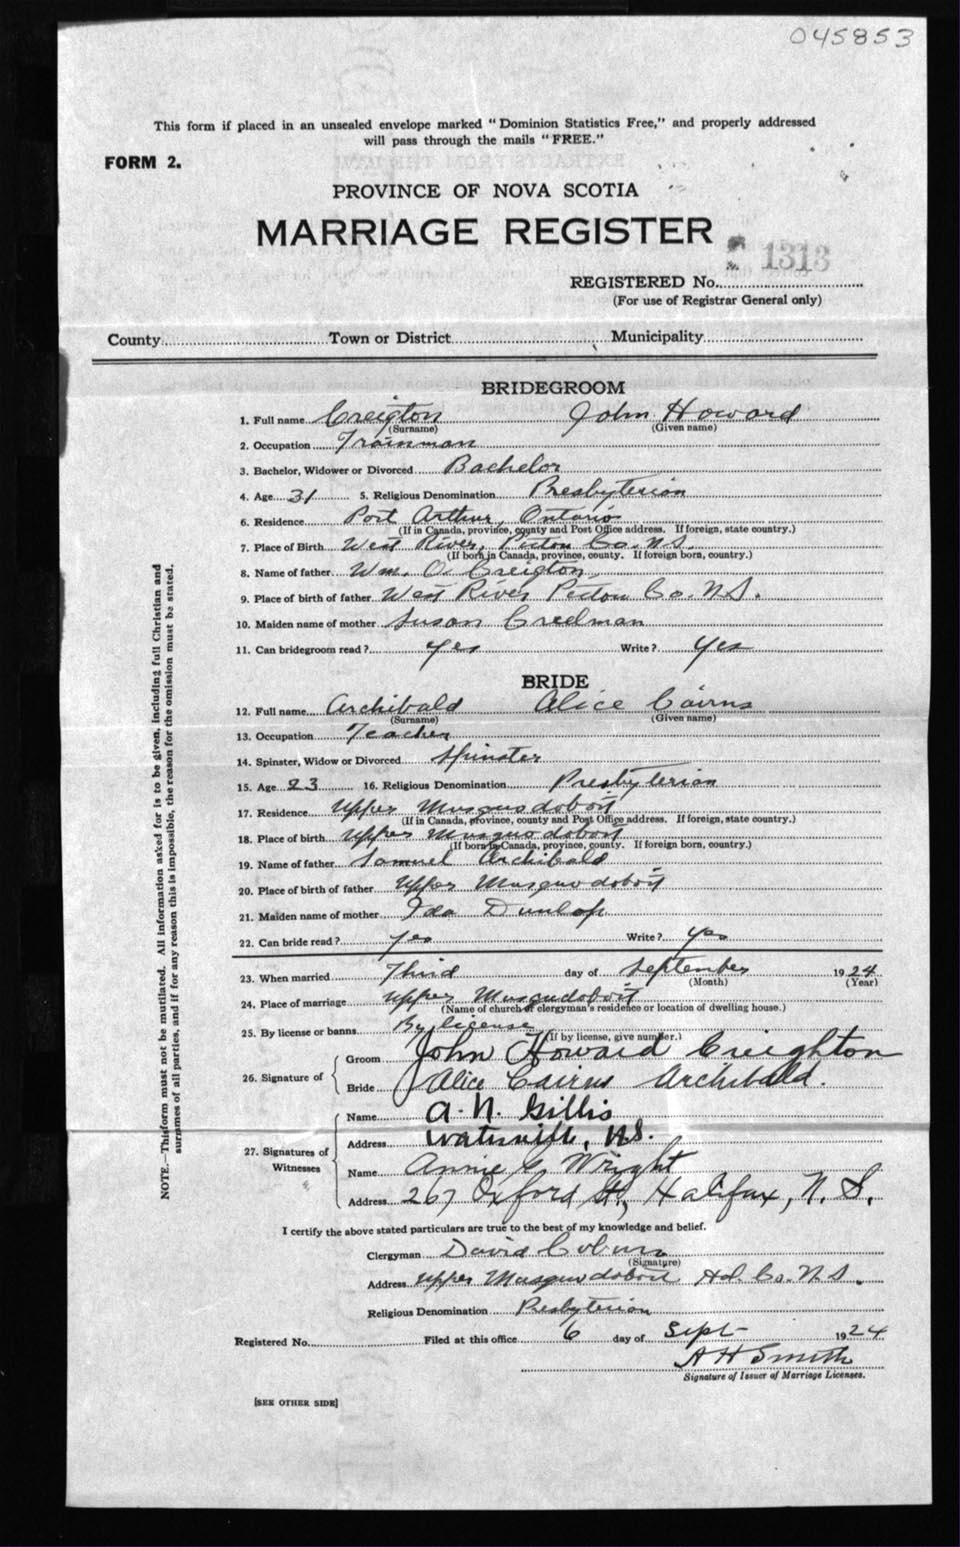 045853
This form if placed in an unsealed envelope marked "Dominion Statistics Free," and properly addressed
will pass through the mails "FREE."
FORM 2.
PROVINCE OF NOVA SCOTIA
MARRIAGE REGISTER
1313
REGISTERED No.
(For use of Registrar General only)
County Town or District Municipality
BRIDEGROOM
1. Full name Creigton John Howard
(Surname) (Given name)
2. Occupation Trainman
3. Bachelor, Widower or Divorced Bachelor
4. Age 31 5. Religious Denomination Presbyterian
6. Residence Port Arthur, Ontario
(If in Canada, province, county and Post Office address. If foreign, state country.)
7. Place of Birth West River, Pictou Co. N.S.
(If born in Canada, province, county. If foreign born, country.)
8. Name of father Wm. O. Creigton
9. Place of birth of father West River Pictou Co. N.S.
10. Maiden name of mother Susan Creelman
11. Can bridegroom read? Yes Write? Yes
BRIDE
12. Full name Archibald Alice Cairns
(Surname) (Given name)
13. Occupation Teacher
14. Spinster, Widow or Divorced Spinster
15. Age 23 16. Religious Denomination Presbyterian
17. Residence Upper Musquodoboit
(If in Canada, province, county and Post Office address. If foreign, state country.)
18. Place of birth Upper Musquodoboit
(If born in Canada, province, county. If foreign born, country.)
19. Name of father Samuel Archibald
20. Place of birth of father Upper Musquodoboit
21. Maiden name of mother Ida Dunlop
22. Can bride read? Yes Write? Yes
23. When married Third day of September 1924
(Month) (Year)
24. Place of marriage Upper Musquodoboit
(Name of church or clergyman's residence or location of dwelling house.)
25. By license or banns By license
(If by license, give number.)
26. Signature of Groom John Howard Creighton
Bride Alice Cairns Archibald.
27. Signatures of Witnesses
Name A. N. Gillis
Address Waterville, N.S.
Name Annie G. Wright
Address 267 Oxford St, Halifax, N.S.
I certify the above stated particulars are true to the best of my knowledge and belief.
Clergyman David Coburn
(Signature)
Address Upper Musquodoboit Hd. Co. N.S.
Religious Denomination Presbyterian
Registered No. Filed at this office 6 day of Sept 1924
A H Smith
Signature of Issuer of Marriage Licenses.
[SEE OTHER SIDE]
NOTE.—This form must not be mutilated. All information asked for is to be given, including full Christian and
surnames of all parties, and if for any reason this is impossible, the reason for the omission must be stated.